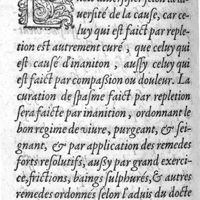 uersité de la cause, car ce-
luy qui est faict par reple
tion est autrement curé, que celuy qui
est causé d'inanition, aussy celuy qui
est faict par compassion ou douleur. La
curation de spasme faict par repletion
sera faicte par inanition, ordonnant le
bon regime de viure, purgeant, & sei-
gnant, & par application des remedes
forts resolutifs, aussy par grand exerci-
ce, frictions, baings sulphurés, & autres
remedes ordonnés selon l'aduis du docte